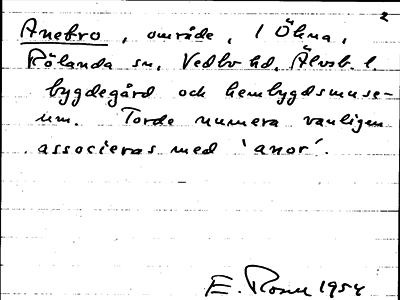 2
Anebro, område, / Ökna,
Rölanda sn, Vedbo hd, Älvsb. l.
bygdegård och hembygdsmuse-
um. Torde numera vanligen
associeras med 'anor'.
E. Rosen 1954